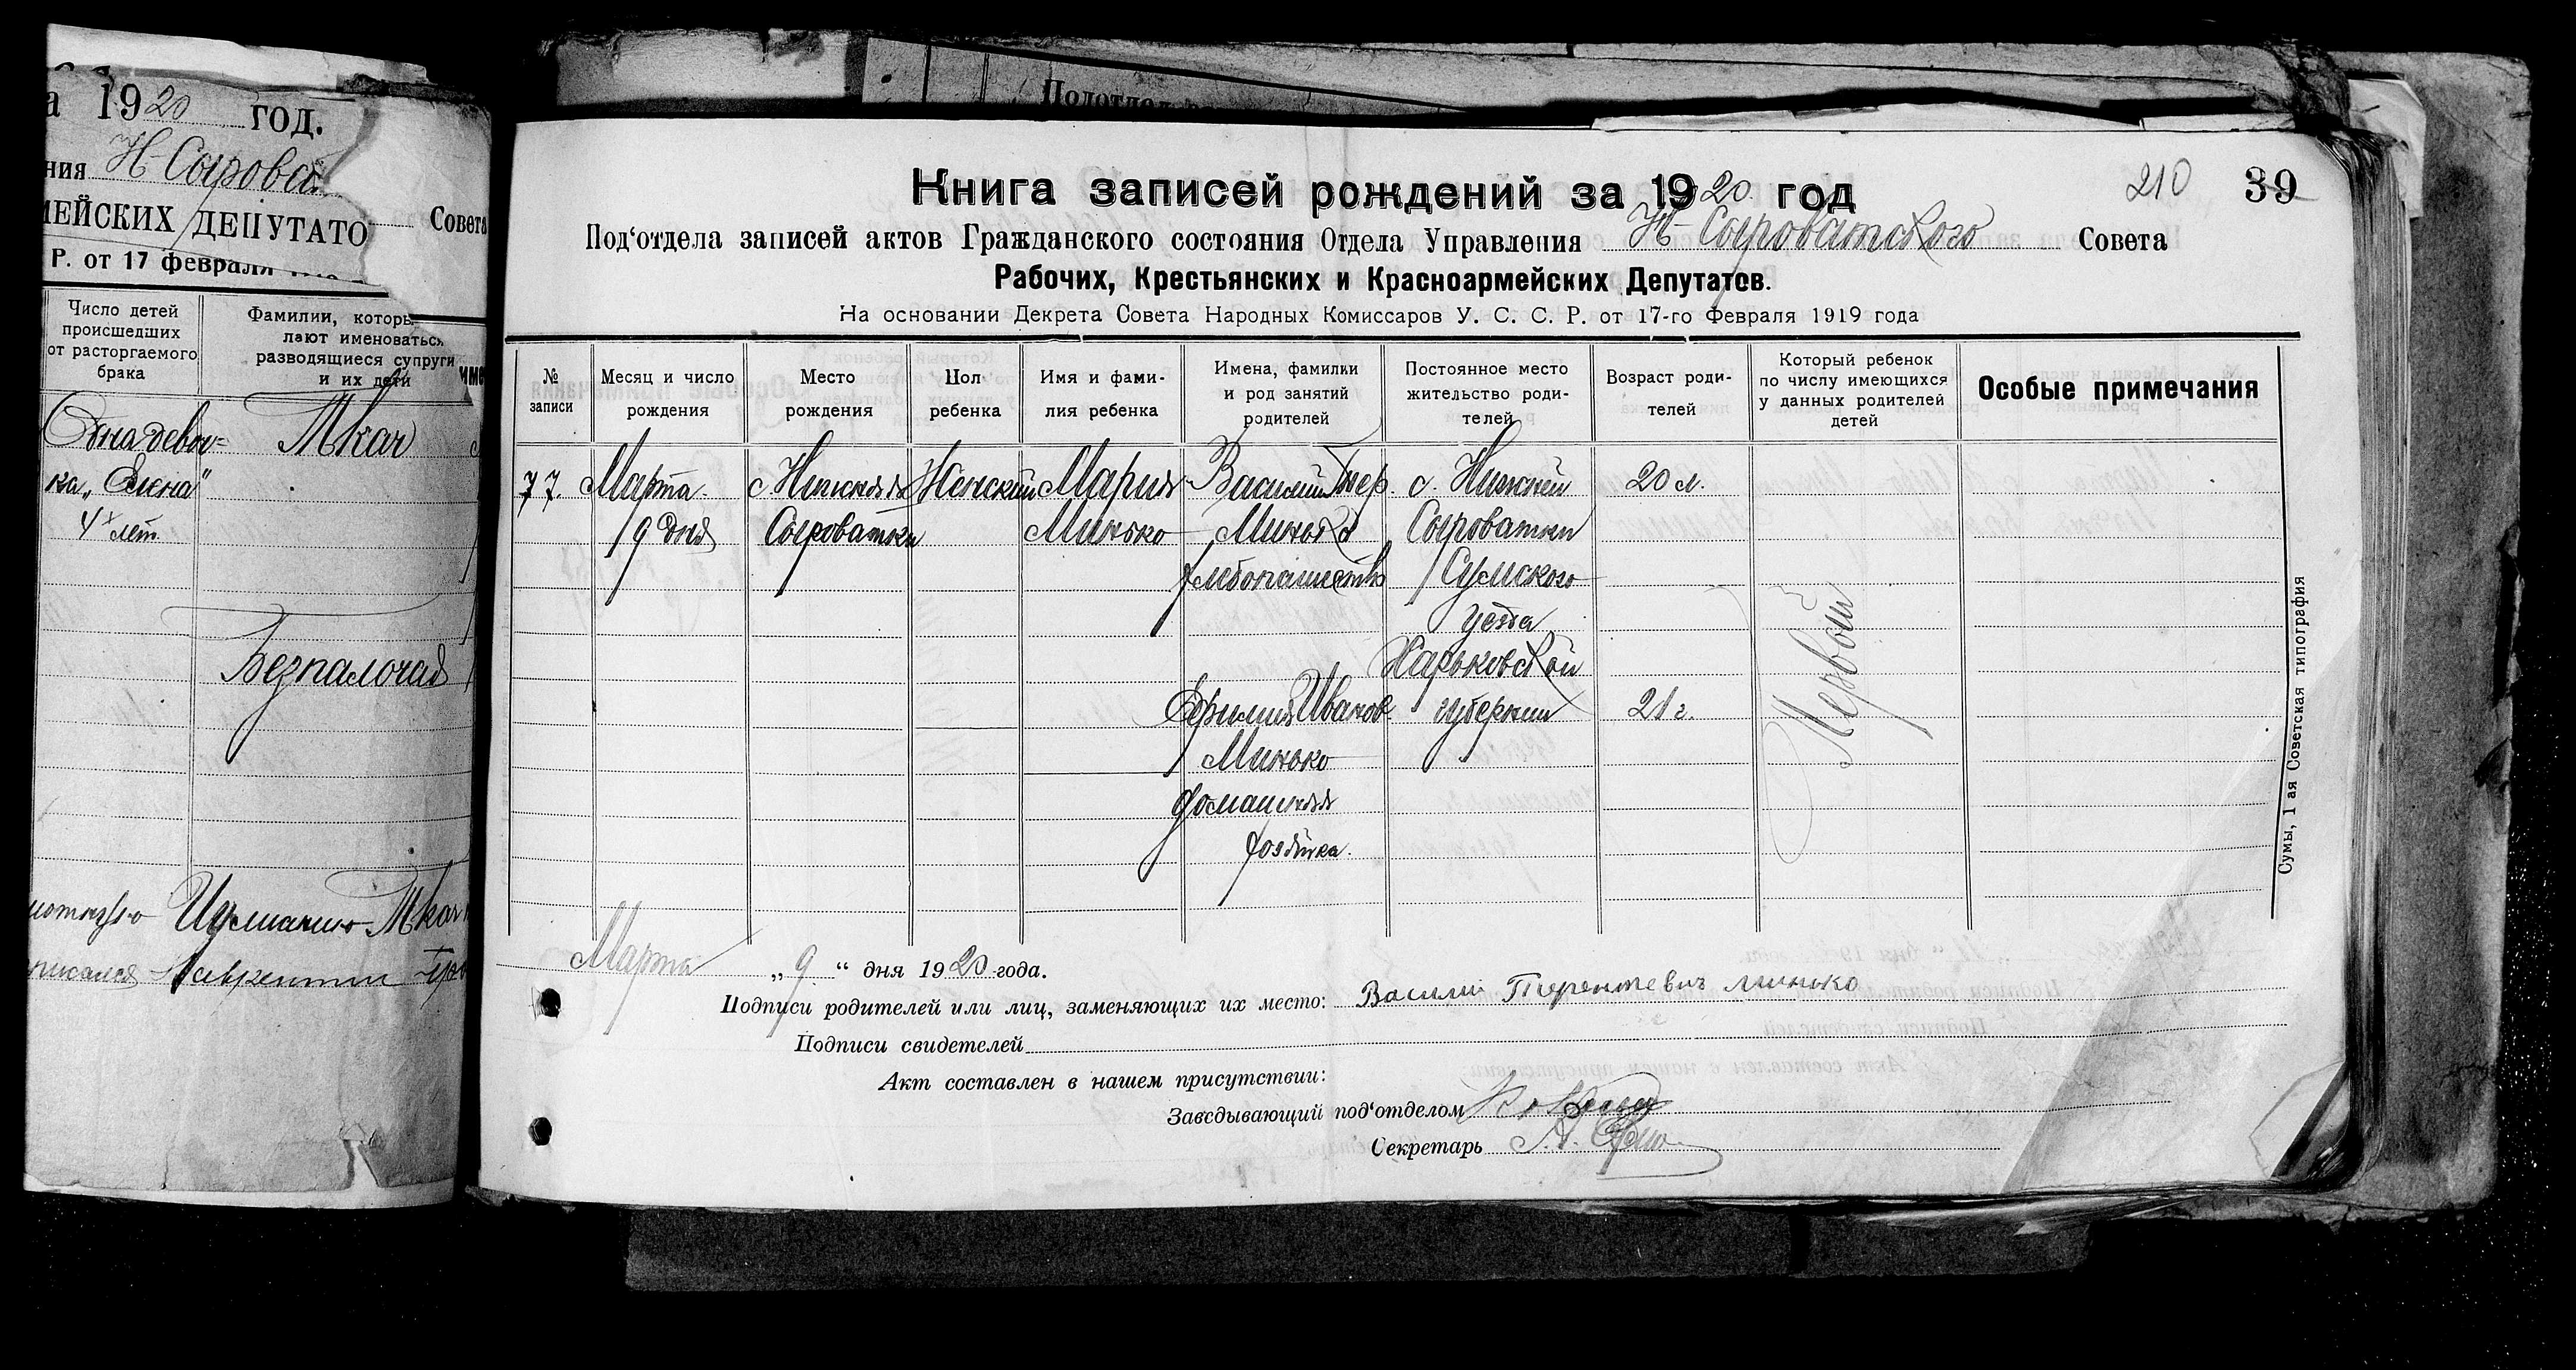 а 1920 год.
ния Н-Сыроват
МЕЙСКИХ ДЕПУТАТО Совета
Р. от 17 февраля
Число детей происшедших от расторгаемого брака
Фамилии, которы лают именоваться разводящиеся супруги и их дети
Одна девоч- Ткач
ка „Елена"
4х лет
Безпалочая
Ткач
Лаврентий
Подотдел
Книга записей рождений за 1920 год
210 39
Под'отдела записей актов Гражданского состояния Отдела Управления Н-Сыроватского Совета
Рабочих, Крестьянских и Красноармейских Депутатов.
На основании Декрета Совета Народных Комиссаров У. С. С. Р. от 17-го Февраля 1919 года
№ записи
Месяц и число рождения
Место рождения
Пол ребенка
Имя и фами- лия ребенка
Имена, фамилии и род занятий родителей
Постоянное место жительство роди- телей
Возраст роди- телей
Который ребенок по числу имеющихся у данных родителей детей
Особые примечания
77. Марта с Нижняя Женский Мария Василий Тер. с. Нижней 20 л.
9 дня Сыроватка Минько Минько Сыроватки
хлебопашество Сумского
уезда
Харьковской
Ефимия Иванов. губернии 21 г.
Первой
Минько
домашняя
хозяйка.
Марта „9" дня 1920 года.
Подписи родителей или лиц, заменяющих их место: Василий Терентевич Минько
Подписи свидетелей
Акт составлен в нашем присутствии:
Заведывающий под'отделом
Секретарь
Сумы, 1 ая Советская типография